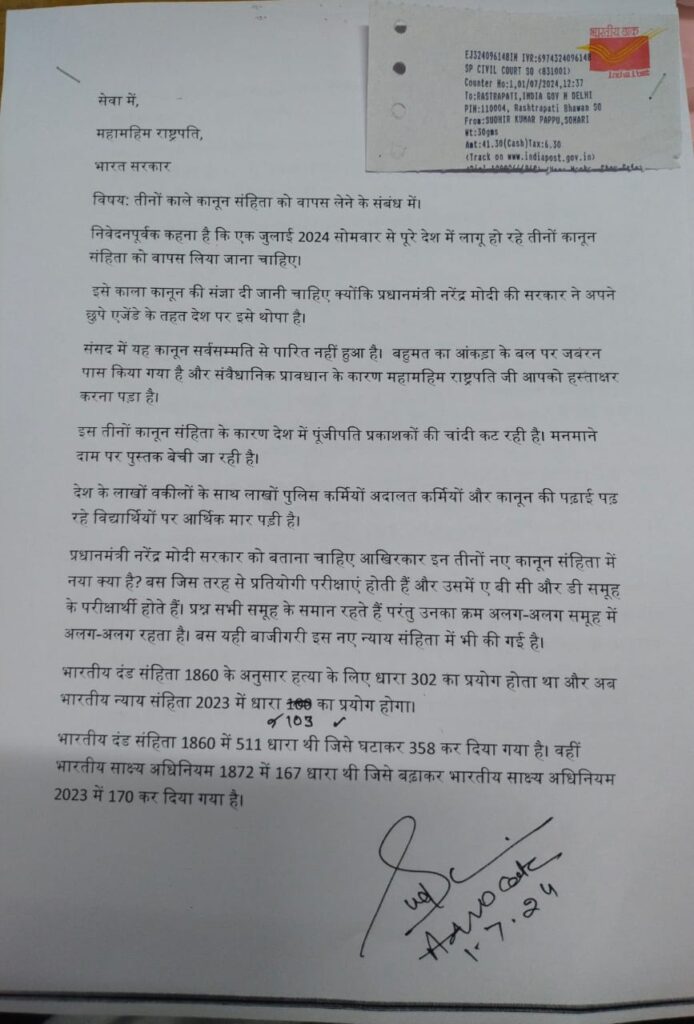 भारतीय डाक
India Post
EJ324096148IN IVR:6974324096148
SP CIVIL COURT SO <831001>
Counter No:1,01/07/2024,12:37
To:RASTRAPATI,INDIA GOV N DELHI
PIN:110004, Rashtrapati Bhawan SO
From:SUDHIR KUMAR PAPPU,SONARI
Wt:30gms
Amt:41.30(Cash)Tax:6.30
<Track on www.indiapost.gov.in>
सेवा में,
महामहिम राष्ट्रपति,
भारत सरकार
विषय: तीनों काले कानून संहिता को वापस लेने के संबंध में।
निवेदनपूर्वक कहना है कि एक जुलाई 2024 सोमवार से पूरे देश में लागू हो रहे तीनों कानून
संहिता को वापस लिया जाना चाहिए।
इसे काला कानून की संज्ञा दी जानी चाहिए क्योंकि प्रधानमंत्री नरेंद्र मोदी की सरकार ने अपने
छुपे एजेंडे के तहत देश पर इसे थोपा है।
संसद में यह कानून सर्वसम्मति से पारित नहीं हुआ है। बहुमत का आंकड़ा के बल पर जबरन
पास किया गया है और संवैधानिक प्रावधान के कारण महामहिम राष्ट्रपति जी आपको हस्ताक्षर
करना पड़ा है।
इस तीनों कानून संहिता के कारण देश में पूंजीपति प्रकाशकों की चांदी कट रही है। मनमाने
दाम पर पुस्तक बेची जा रही है।
देश के लाखों वकीलों के साथ लाखों पुलिस कर्मियों अदालत कर्मियों और कानून की पढ़ाई पढ़
रहे विद्यार्थियों पर आर्थिक मार पड़ी है।
प्रधानमंत्री नरेंद्र मोदी सरकार को बताना चाहिए आखिरकार इन तीनों नए कानून संहिता में
नया क्या है? बस जिस तरह से प्रतियोगी परीक्षाएं होती हैं और उसमें ए बी सी और डी समूह
के परीक्षार्थी होते हैं। प्रश्न सभी समूह के समान रहते हैं परंतु उनका क्रम अलग-अलग समूह में
अलग-अलग रहता है। बस यही बाजीगरी इस नए न्याय संहिता में भी की गई है।
भारतीय दंड संहिता 1860 के अनुसार हत्या के लिए धारा 302 का प्रयोग होता था और अब
भारतीय न्याय संहिता 2023 में धारा 100 का प्रयोग होगा।
103
भारतीय दंड संहिता 1860 में 511 धारा थी जिसे घटाकर 358 कर दिया गया है। वहीं
भारतीय साक्ष्य अधिनियम 1872 में 167 धारा थी जिसे बढ़ाकर भारतीय साक्ष्य अधिनियम
2023 में 170 कर दिया गया है।
Advocate
1.7.24